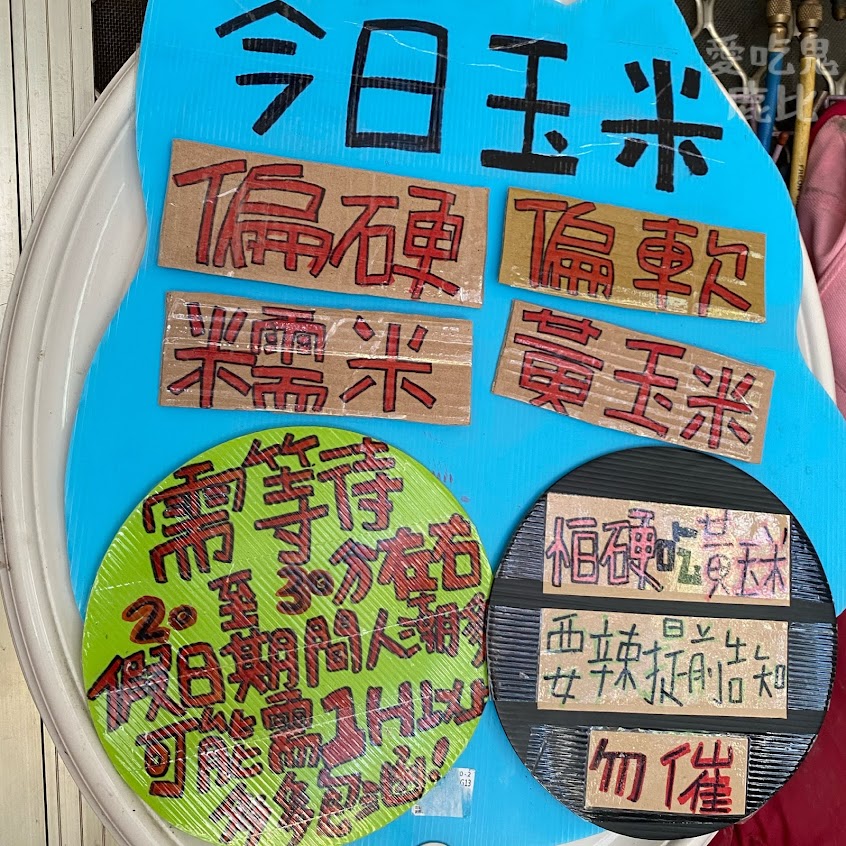 愛吃鬼
鹿比
今日玉米
偏硬
偏軟
糯米
黃玉米
需等待
20至30分在右
假日期間人潮多
可能需1H以上
請多包涵!
怕硬吃黃玉米
要辣提前告知
勿催